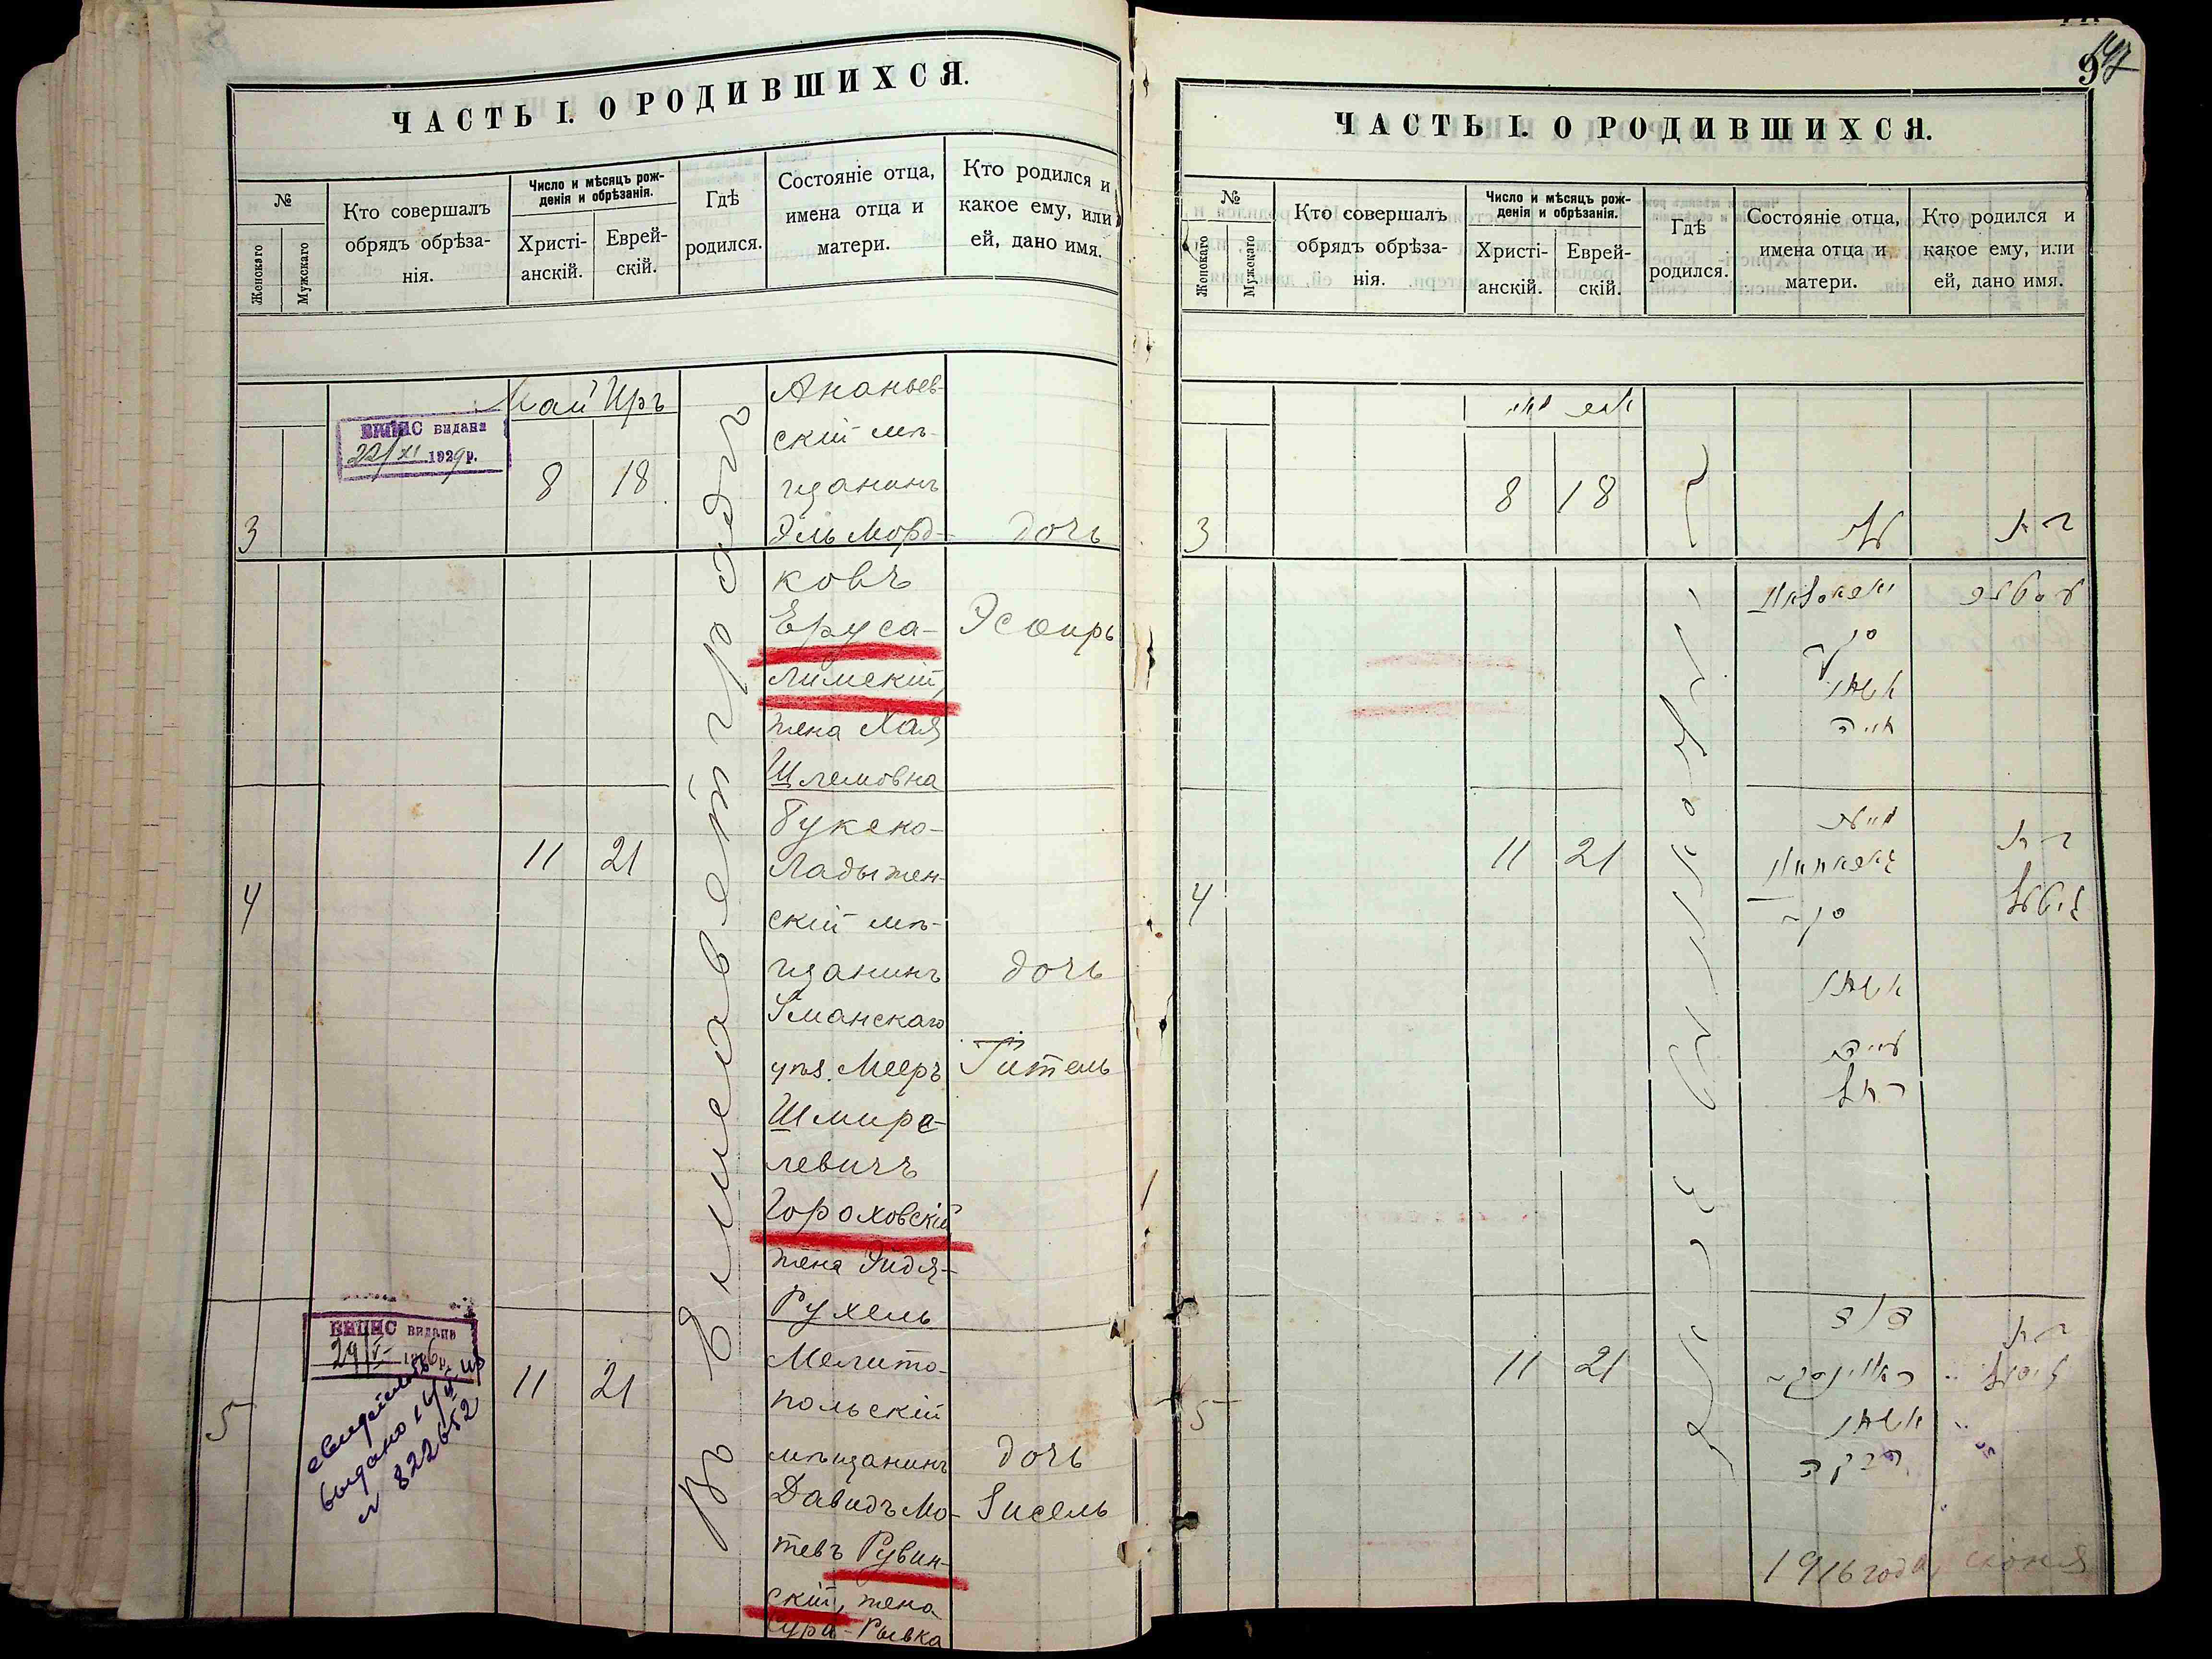 ЧАСТЬ I. О РОДИВШИХСЯ.
№
Женскаго
Мужскаго
Кто совершалъ
обрядъ обрѣза-
нія.
Число и мѣсяцъ рож-
денія и обрѣзанія.
Христі-
анскій.
Еврей-
скій.
Гдѣ
родился.
Состояніе отца,
имена отца и
матери.
Кто родился и
какое ему, или
ей, дано имя.
Май Иръ
ВИПИС видана
22/XI 1929р.
3
8 18
Ананьев-
скій мѣ-
щанинъ
Эль Морд-
ковъ
Еруса-
лимскій,
жена Хая
Шлемовна
дочь
Эсѳирь
Въ Елисаветградѣ
4
11 21
Буксно-
Ладыжен-
скій мѣ-
щанинъ
Уманскаго
уѣз. Мееръ
Шмира-
левичъ
Гороховскій
жена Эйдя-
Рухель
дочь
Гитель
5
ВИПИС видана
выдано
822652
11 21
Мелито-
польскій
мѣщанинъ
Давидъ Мо-
тевъ Рувин-
скій, жена
Сура-Рывка
дочь
Зисель
ЧАСТЬ I. О РОДИВШИХСЯ.
№
Женскаго
Мужскаго
Кто совершалъ
обрядъ обрѣза-
нія.
Число и мѣсяцъ рож-
денія и обрѣзанія.
Христі-
анскій.
Еврей-
скій.
Гдѣ
родился.
Состояніе отца,
имена отца и
матери.
Кто родился и
какое ему, или
ей, дано имя.
3
8 18
בת
אשתו
חיה
4
11 21
בת
גיטל
אשתו
רחל
5
11 21
דוד
בת
זיסל
אשתו
רבקה
1916 года, июня